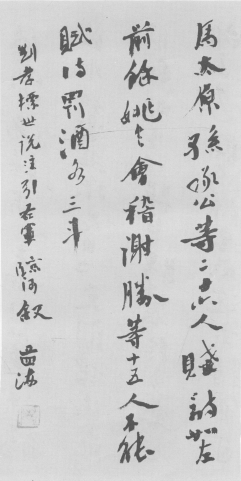 馬太原孫承公等二十六人賦詩如左
前餘姚令會稽謝勝等十五人不能
賦詩罰酒各三斗
劉孝標世說注引右軍臨河敘